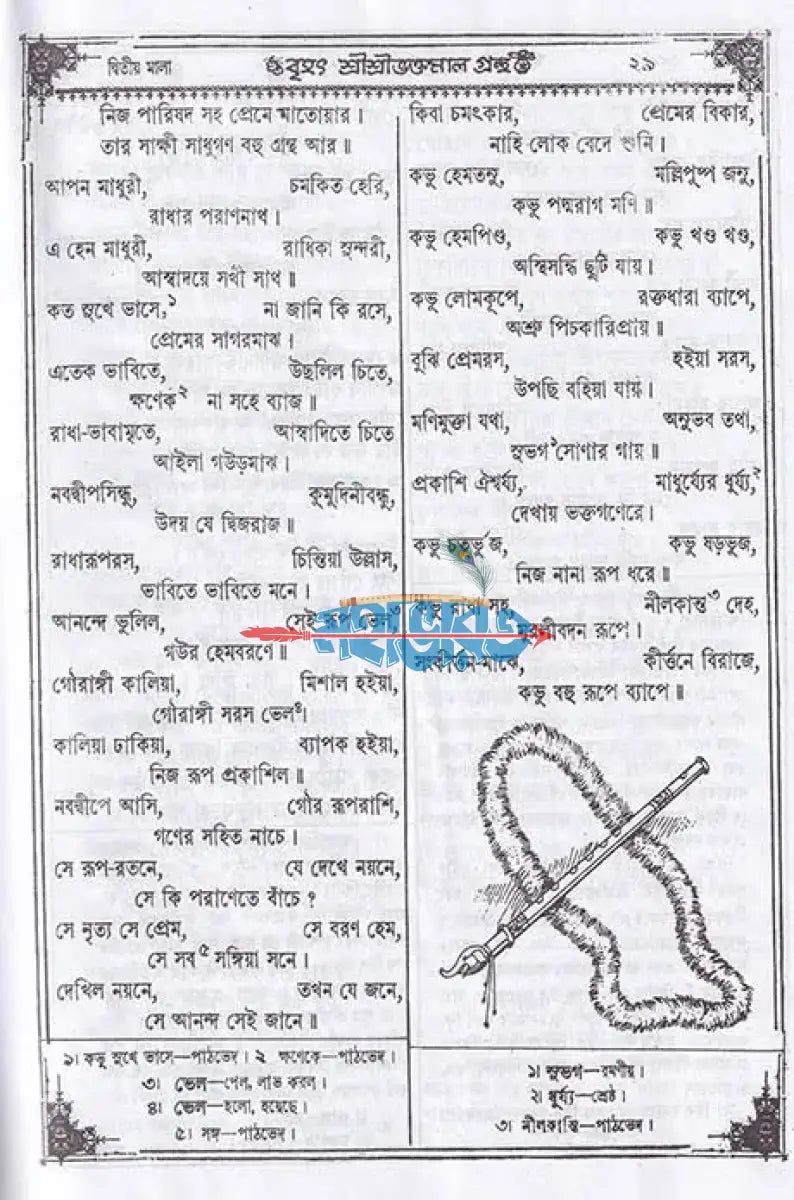 দ্বিতীয় মালা
বৃহৎ শ্রীশ্রীভক্তমাল গ্রন্থ
২৯
নিজ পারিষদ সহ প্রেমে মাতোয়ার।
তার সাক্ষী সাধুগণ বহু গ্রন্থ আর॥
আপন মাধুরী, চমকিত হেরি,
রাধার পরাণনাথ।
এ হেন মাধুরী, রাধিকা সুন্দরী,
আস্বাদয়ে সখী সাথ॥
কত সুখে ভাসে,১ না জানি কি রসে,
প্রেমের সাগরমাঝ।
এতেক ভাবিতে, উছলিল চিতে,
ক্ষণেক২ না সহে ব্যাজ॥
রাধা-ভাবামৃতে, আস্বাদিতে চিতে
আইলা গউড়মাঝ।
নবদ্বীপসিন্ধু, কুমুদিনীবন্ধু,
উদয় যে দ্বিজরাজ॥
রাধারূপরস, চিন্তিয়া উল্লাস,
ভাবিতে ভাবিতে মনে।
আনন্দে ভুলিল, সেই রূপ ভেল,৩
গউর হেমবরণে॥
গৌরাঙ্গী কালিয়া, মিশাল হইয়া,
গৌরাঙ্গী সরস ভেল৪।
কালিয়া ঢাকিয়া, ব্যাপক হইয়া,
নিজ রূপ প্রকাশিল॥
নবদ্বীপে আসি, গৌর রূপরাশি,
গণের সহিত নাচে।
সে রূপ-রতনে, যে দেখে নয়নে,
সে কি পরাণেতে বাঁচে ?
সে নৃত্য সে প্রেম, সে বরণ হেম,
সে সব৫ সঙ্গিয়া সনে।
দেখিল নয়নে, তখন যে জনে,
সে আনন্দ সেই জানে॥
১। কভু সুখে ভাসে—পাঠভেদ। ২ ক্ষণেকে—পাঠভেদ।
৩। ভেল—পেল, লাভ করল।
৪। ভেল—হলো, হয়েছে।
৫। সঙ্গ—পাঠভেদ।
কিবা চমৎকার, প্রেমের বিকার,
নাহি লোক বেদে শুনি।
কভু হেমতনু, মল্লিপুষ্প জনু,
কভু পদ্মরাগ মণি॥
কভু হেমপিণ্ড, কভু খণ্ড খণ্ড,
অস্থিসন্ধি ছুটি যায়।
কভু লোমকূপে, রক্তধারা ব্যাপে,
অশ্রু পিচকারিপ্রায়॥
বুঝি প্রেমরস, হইয়া সরস,
উপছি বহিয়া যায়।
মণিমুক্তা যথা, অনুভব তথা,
সুভগ১ সোণার গায়॥
প্রকাশি ঐশ্বর্য্য, মাধুর্য্যের ধুর্য্য,২
দেখায় ভক্তগণেরে।
কভু চতুর্ভুজ, কভু ষড়ভুজ,
নিজ নানা রূপ ধরে॥
কভু রাধা সহ, নীলকান্ত৩ দেহ,
মুরলীবদন রূপে।
সংকীর্ত্তন-মাঝে, কীর্ত্তনে বিরাজে,
কভু বহু রূপে ব্যাপে॥
১। সুভগ—রমণীয়।
২। ধুর্য্য—শ্রেষ্ঠ।
৩। নীলকান্তি—পাঠভেদ।